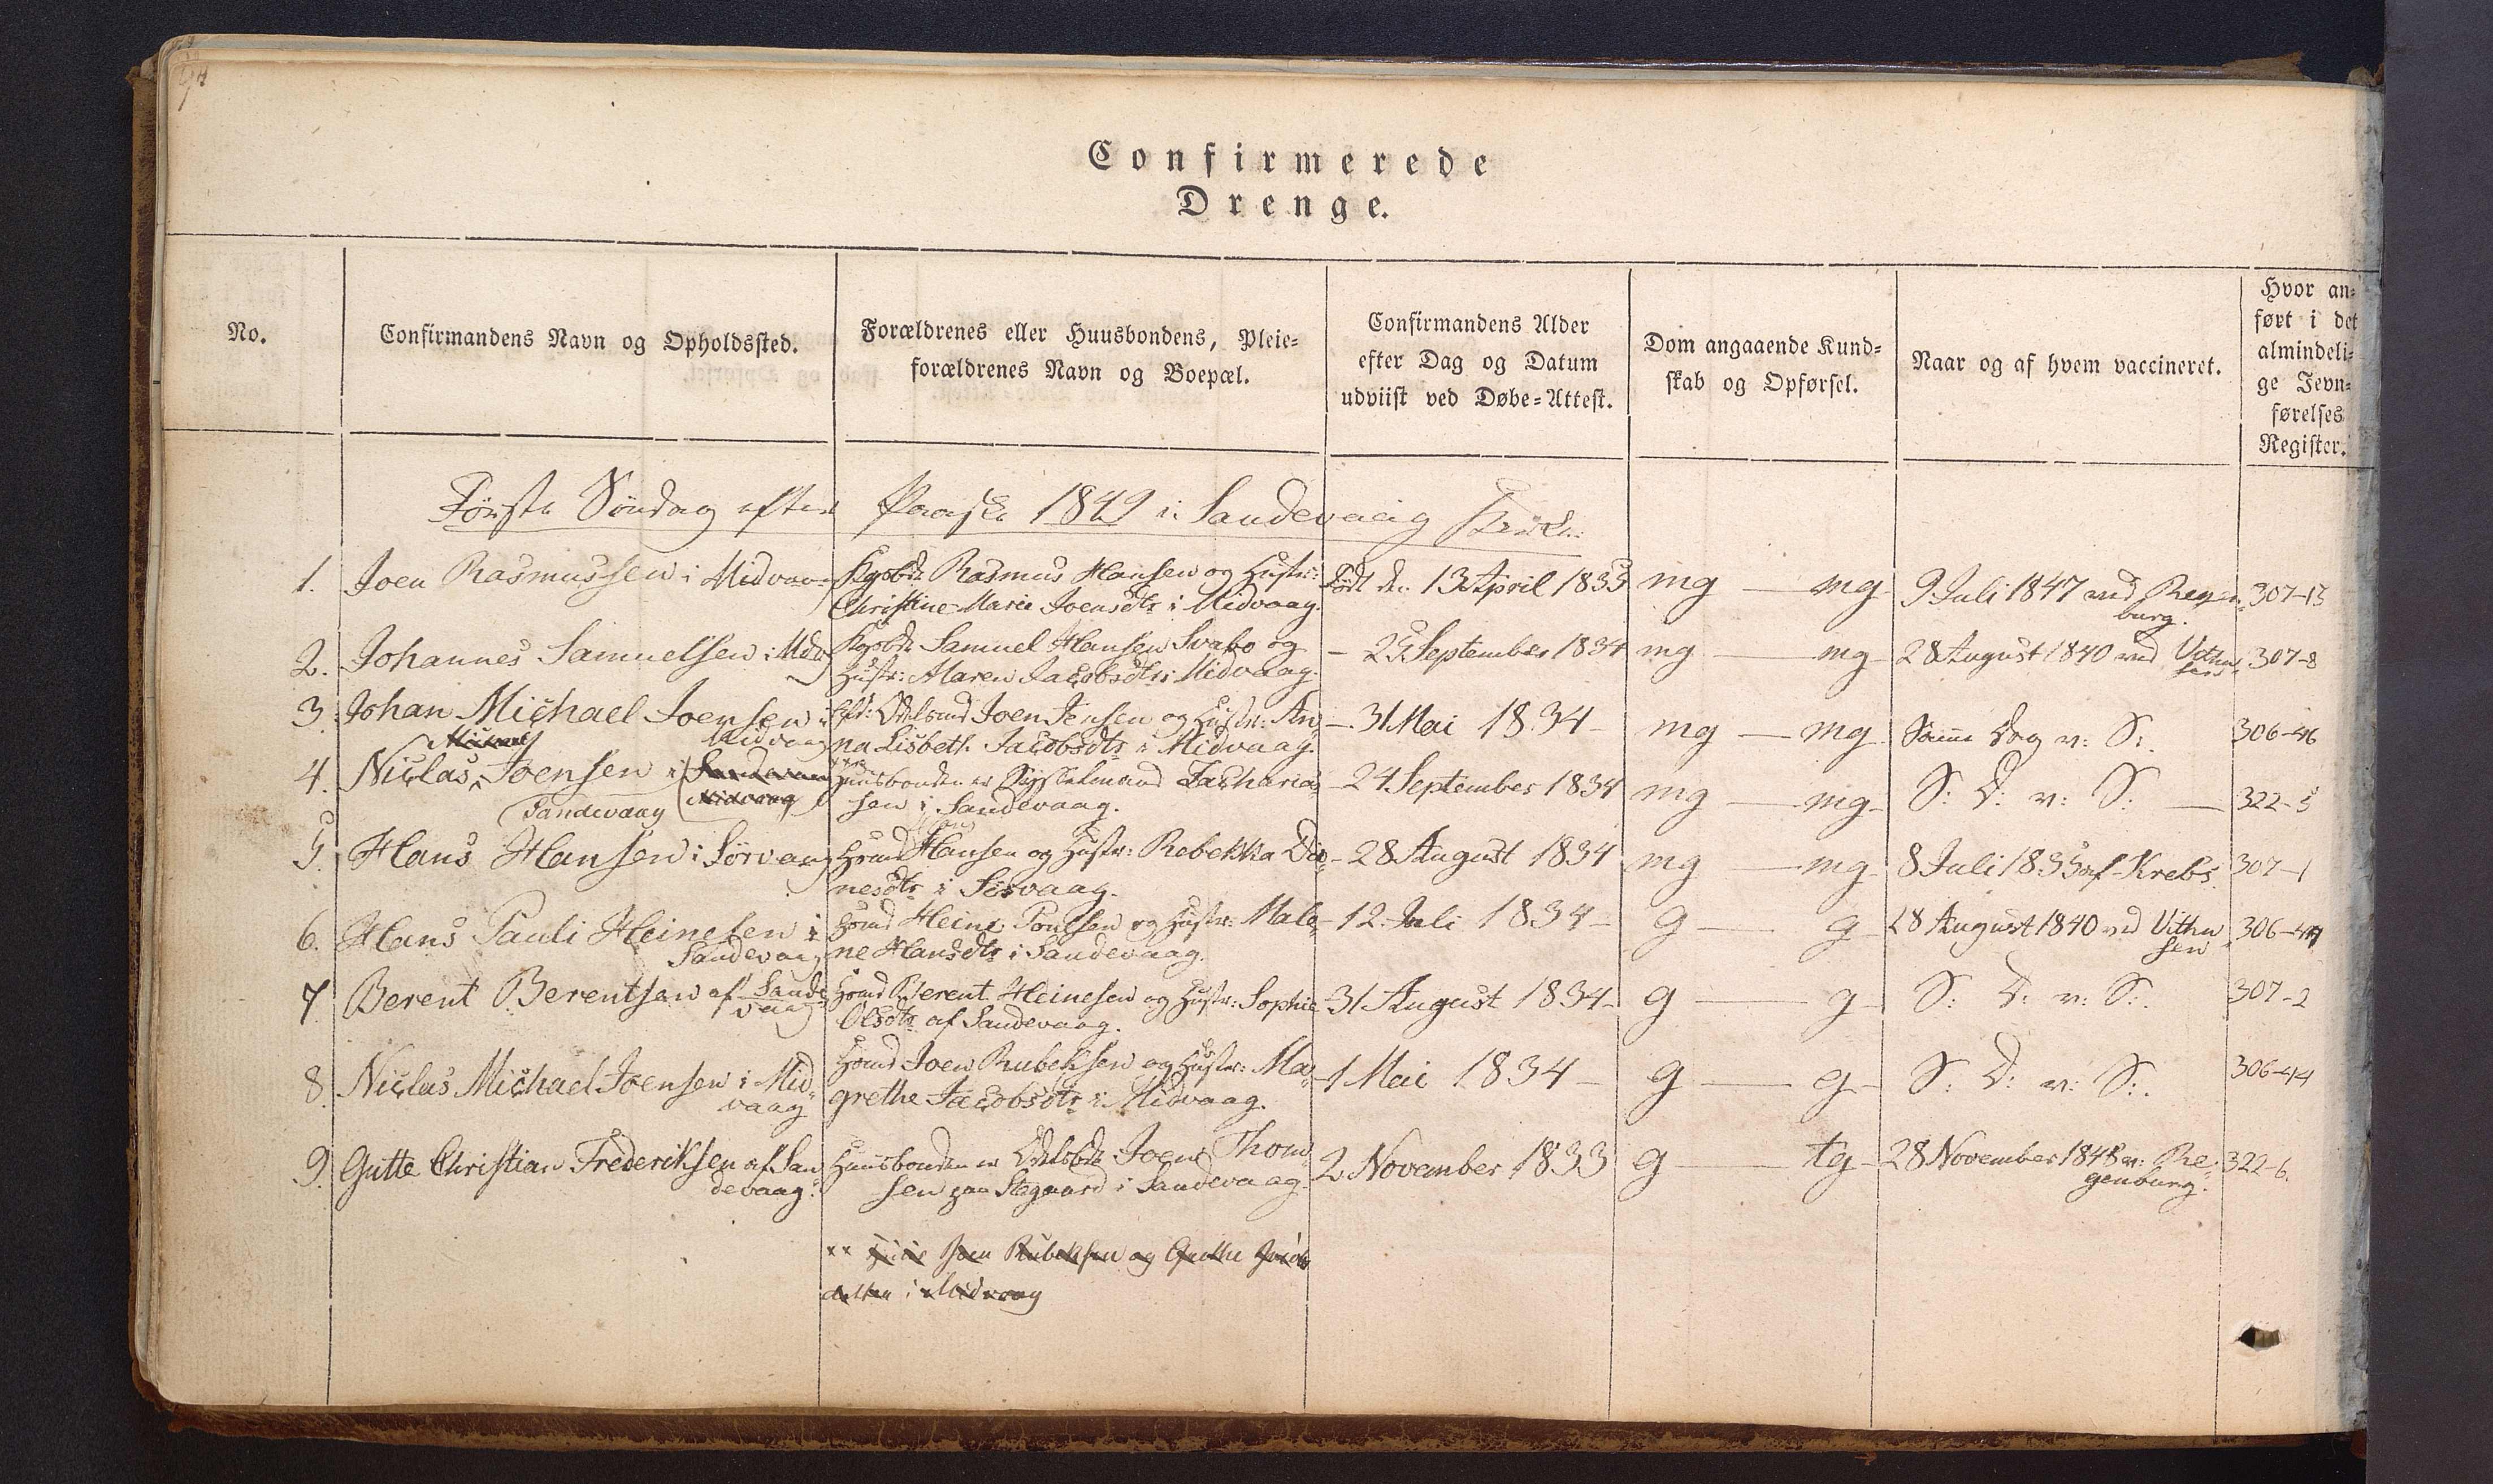 Confirmerede
Drenge.
No.
Confirmandens Navn og Opholdssted.
Forældrenes eller Huusbondens, Pleie=
forældrenes Navn og Boepæl.
Confirmandens Alder
efter Dag og Datum
udviist ved Døbe=Attest.
Dom angaaende Kund=
skab og Opførsel.
Naar og af hvem vaccineret.
Hvor an=
ført i det
almindeli=
ge Jevn=
førelses
Register.
Første Søndag efter Paaske 1849 i Sandevaag Kirke.
1. Joen Rasmussen i Midvaag
Kgsbde Rasmus Hansen og Hustr:
Christine Marie Joensdtr i Midvaag.
Født den 13 April 1835
mg — mg
9 Juli 1847 ved Regen=
burg.
307-13
2. Johannes Samuelsen i Midv
Kgsbde Samuel Hansen Svabo og
Hustr: Maren Jacobsdtr i Midvaag.
- 25 September 1834
mg — mg
28 August 1840 ved Vithu=
sen
307-8
3. Johan Michael Joensen i
Midvaag
Odelsmd Joen Jensen og Hustr: An=
na Lisbeth Jacobsdtr i Midvaag.
- 31 Mai 1834 -
mg — mg
Samme Dag v: S:.
306-46
4. Niclas Joensen i Sandevaag
Midvaag
Sandevaag
Huusbonden er Sysselmand Zacharia=
sen i Sandevaag.
- 24 September 1834
mg — mg
S: D: v: S: —
322-5
5. Hans Hansen i Sørvaag
Hmd Hansen og Hustr: Rebekka Da=
nesdtr i Sørvaag.
- 28 August 1834
mg — mg
8 Juli 1835 af Krebs.
307-1
6. Hans Pauli Heinesen i
Sandevaag
Hmd Heine Poulsen og Hustr: Male=
ne Hansdtr i Sandevaag.
- 12 Juli 1834 -
g — g
28 August 1840 ved Vithu=
sen
306-47
7. Berent Berentsen af Sande=
vaag
Hmd Berent Heinesen og Hustr: Sophie
Olsdtr af Sandevaag.
- 31 August 1834 -
g — g
S: D: v: S:.
307-2
8. Niclas Michael Joensen i Mid=
vaag
Hmd Joen Rubeksen og Hustr: Ma=
grethe Jacobsdtr i Midvaag.
- 1 Mai 1834 -
g — g
S: D: v: S:.
306-44
9. Gutte Christian Frederiksen af San=
devaag.
Huusbonden er Odelsbde Joen Thom=
sen paa Stegaard i Sandevaag.
2 November 1833
g — tg
28 November 1848 v: Re=
genburg.
322-6.
xx Joen Rubeksen og Grethe Jacobs
datter i Midvaag